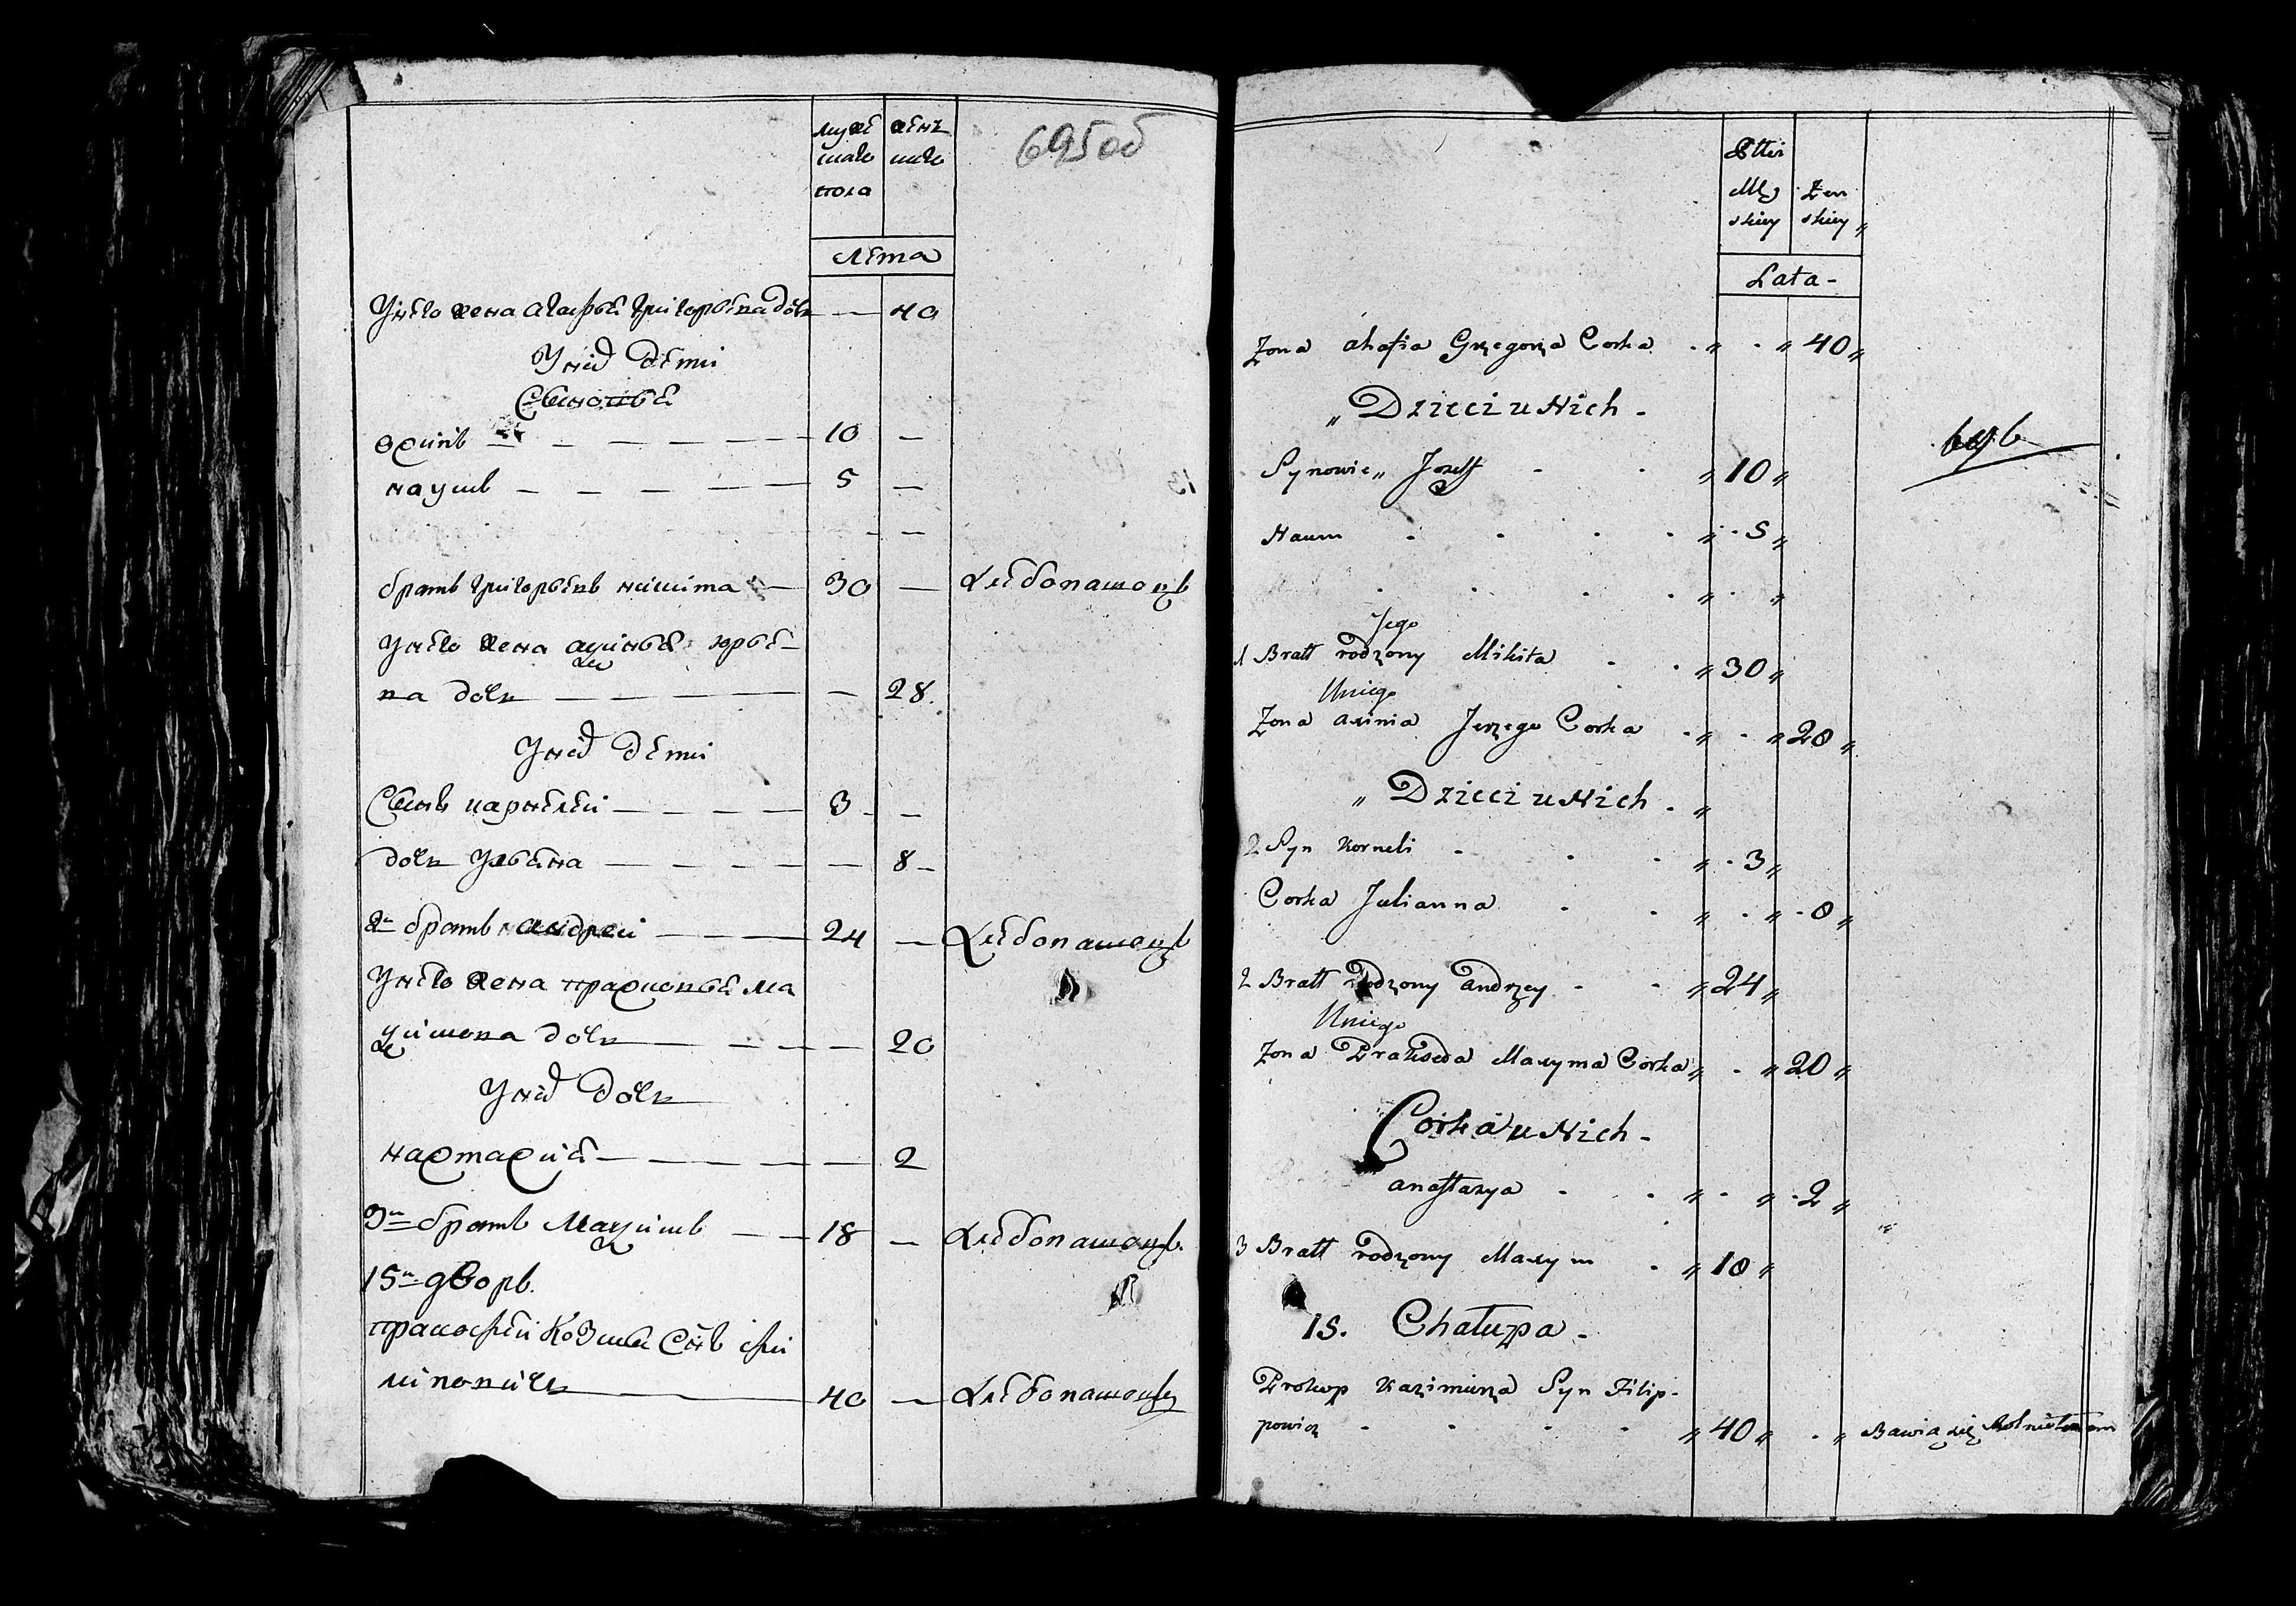 муже женъ
скаго скаго
пола
695 об
Лѣта
Унѣго жена агафья григорьева дочь — 40
Унихъ дѣти
Сыновья
осипъ — 10 —
наумъ — 5 —
братъ григорьевъ никита — 30 — хлѣбопашецъ
Унѣго жена аксинья юрьѣ-
ва дочь — 28
Унихъ дѣти
Сынъ карнѣлѣи — 3 —
дочь Ульяна — 8 —
2й братъ андреи — 24 — хлѣбопашецъ
Унѣго жена прасковья ма
ксимова дочь — 20
Унихъ дочь
настасия — 2
3й братъ Максимъ — 18 — хлѣбопашецъ
15й дворъ.
прокофѣи Козмы Снъ фи
липовичь — 40 — хлѣбопашецъ
Płci
Męz Zen
skiey skiey
Lata -
Zona ahafia Grzegorza Corka 40
Dzieci u Nich -
Synowie Jozeff 10
Naum 5
Jego
1 Bratt rodzony Mikita 30
Uniego
Zona axinia Jerzego Corka 28
Dzieci u Nich -
2 Syn Korneli 3
Corka Julianna 8
2 Bratt rodzony andrzey 24
Uniego
Zona Prakseda Maxyma Corka 20
Corka u Nich -
anastazya 2
3 Bratt rodzony Maxym 18
15. Chałupa -
Prokop Kazimierza Syn Filip-
powicz 40 Bawią się Rolnictwem